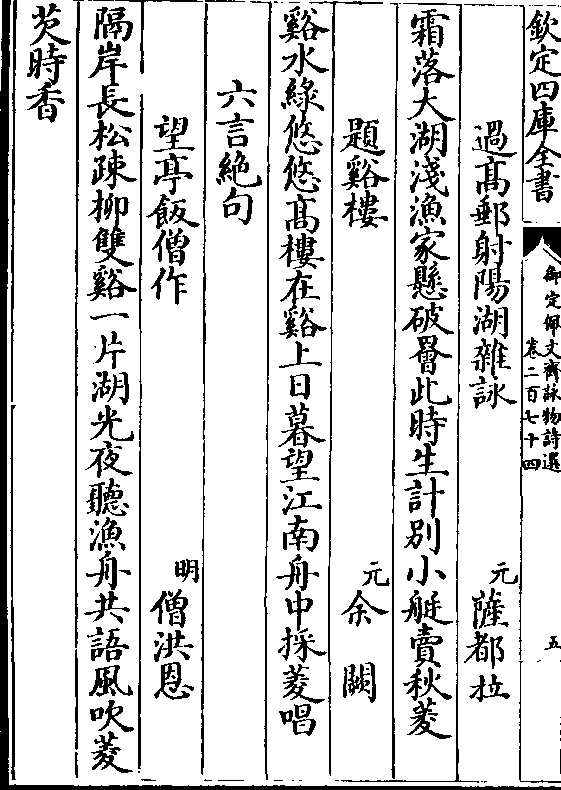 欽定四庫全書
御定佩文齋詠物詩選
卷二百七十四
五
過髙郵射陽湖雜詠
元
薩都拉
霜落大湖淺漁家懸破罾此時生計别小艇賣秋菱
題谿樓
元
余闕
谿水綠悠悠髙樓在谿上日暮望江南舟中採菱唱
六言絶句
望亭飯僧作
明
僧洪恩
隔岸長松疎柳雙谿一片湖光夜聽漁舟共語風吹菱
芡時香